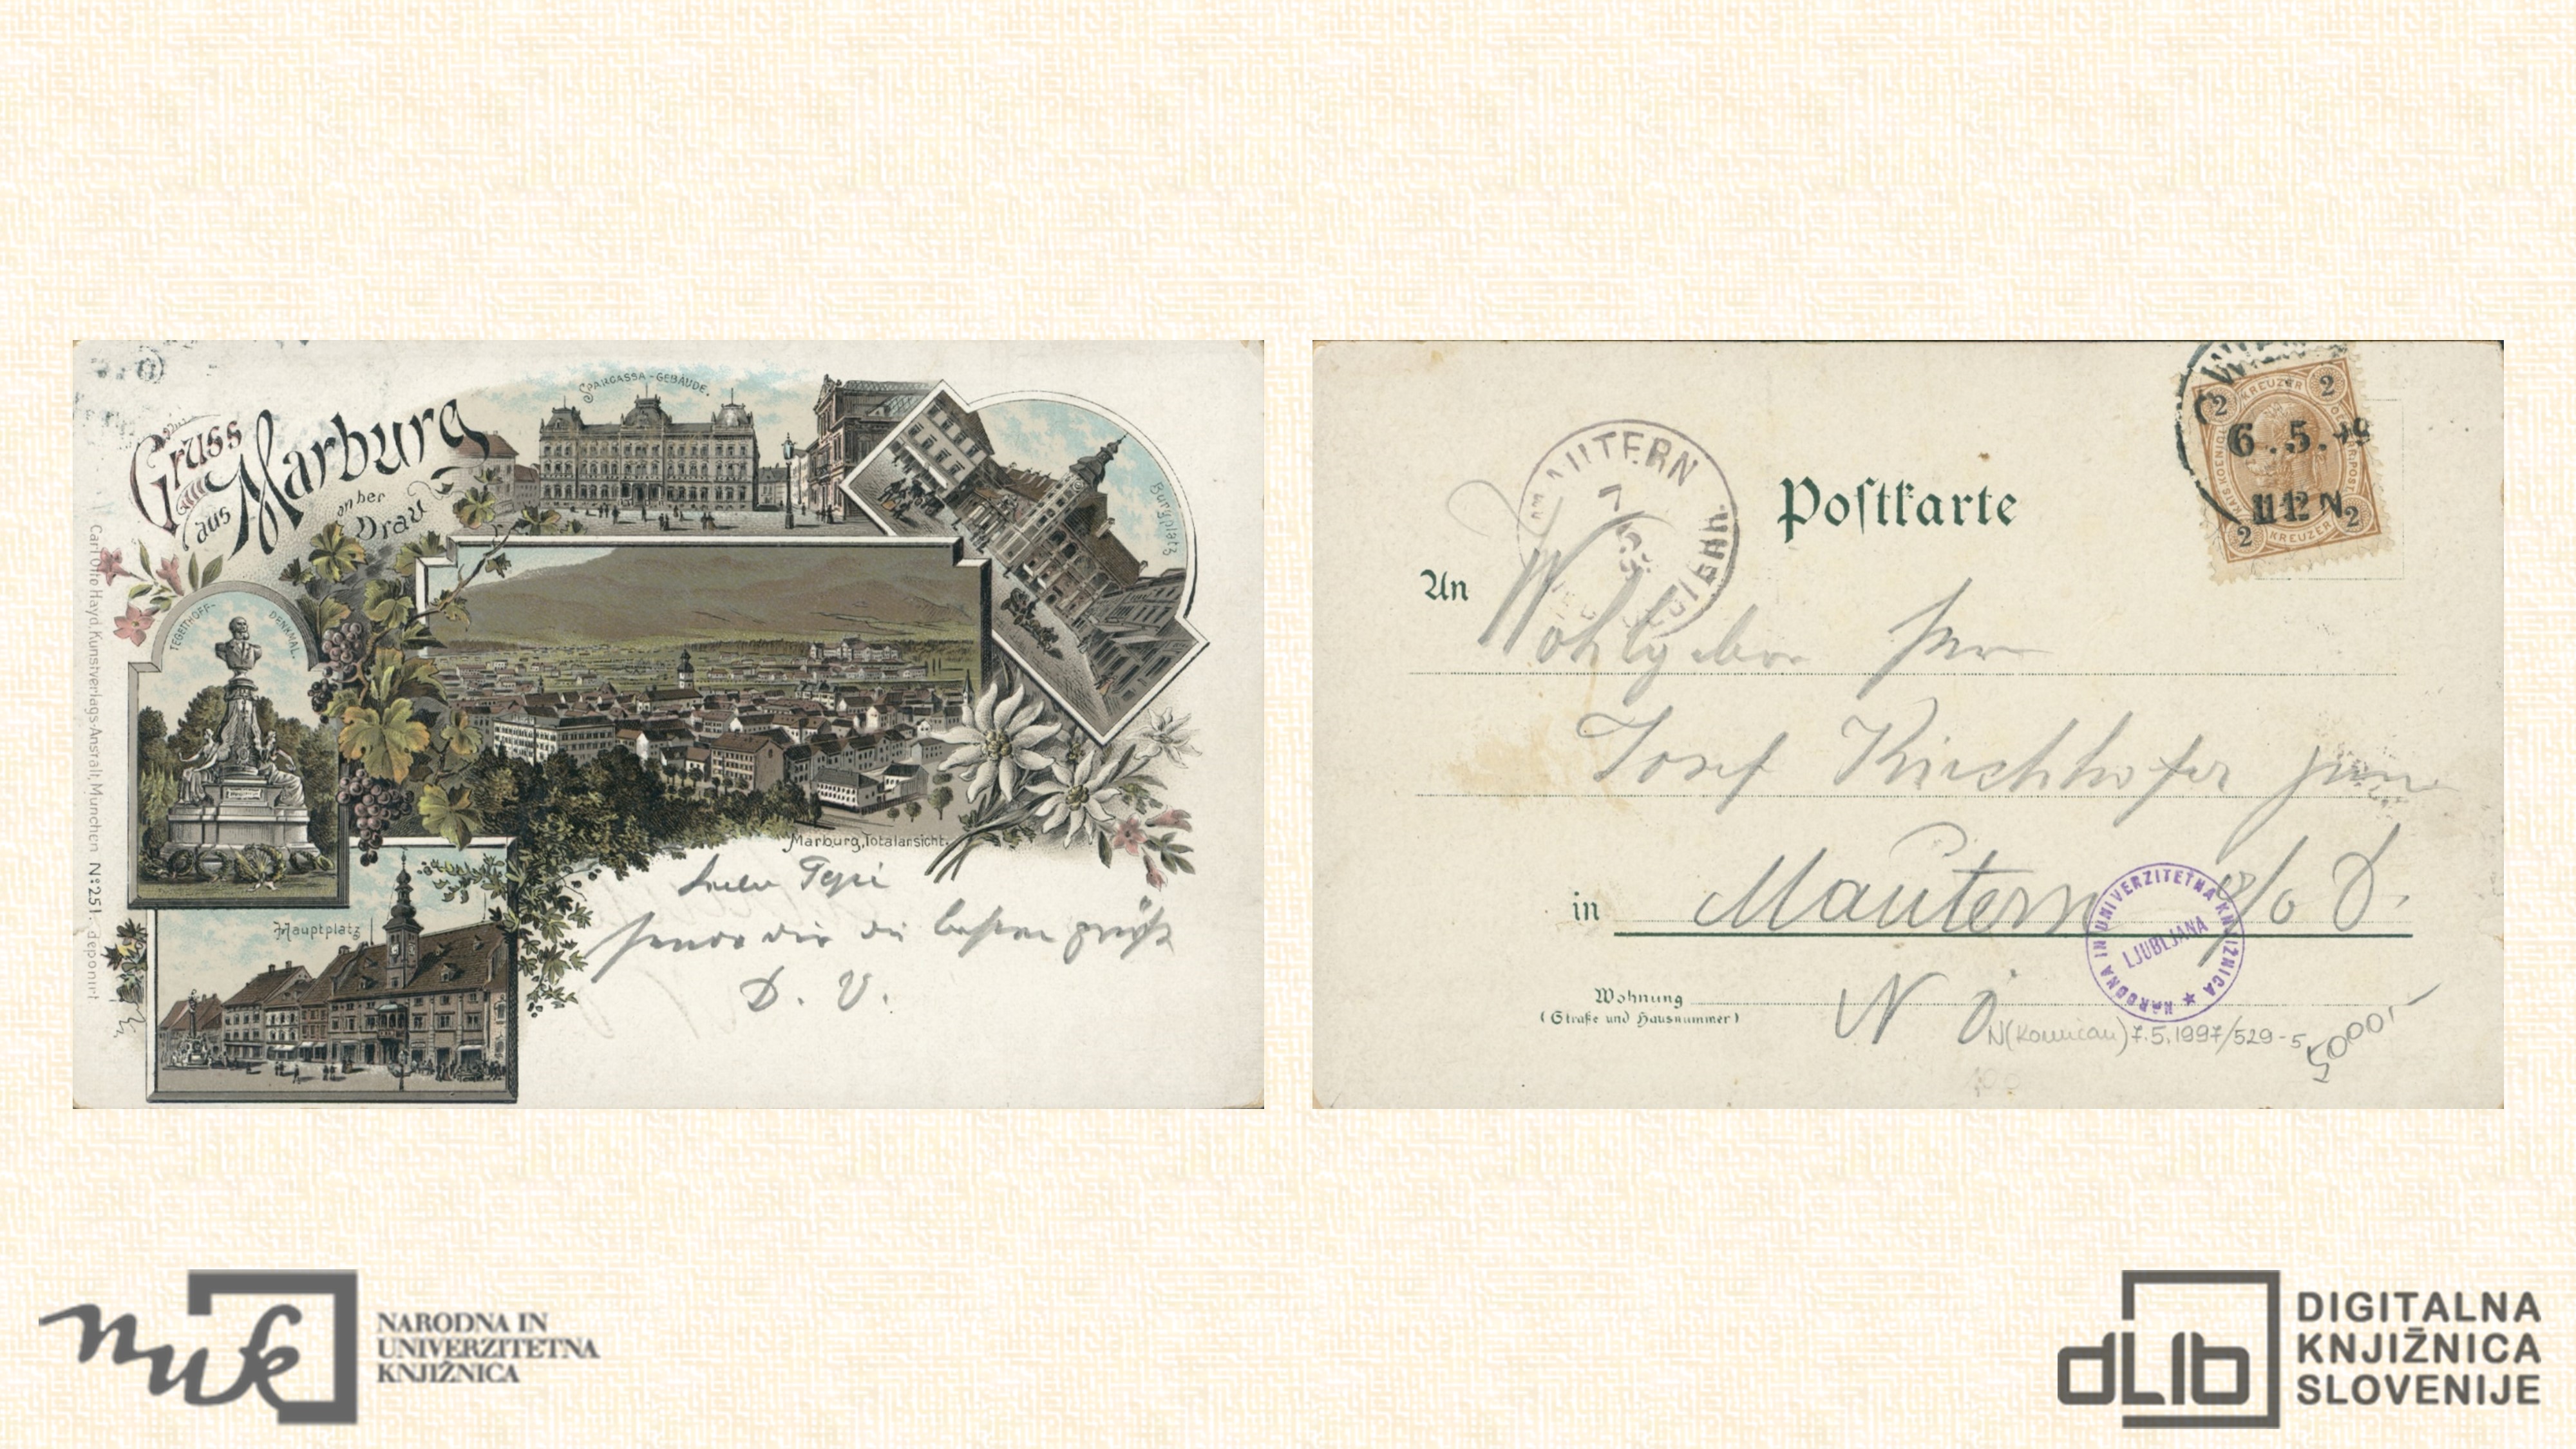 Gruss
aus Marburg
an der
Drau
SPARCASSA-GEBÄUDE.
Burgplatz
TEGETTHOFF-DENKMAL.
Marburg, Totalansicht.
Hauptplatz
Carl Otto Hayd, Kunstverlags-Anstalt, München Nº 251. deponirt
die besten Grüße
D. V.
Postkarte
MAUTERN
7
5
2 KREUZER 2
6.5.99
11-12 N
2 KREUZER 2
An Wohlgebor Herr
Josef Kirchhofer jun
in Mautern a/o D.
Wohnung
(Straße und Hausnummer)
N Ö
NARODNA IN UNIVERZITETNA KNJIŽNICA ★
LJUBLJANA
N(Komican) 7.5.1997/529-5
5000,-
nuk
NARODNA IN
UNIVERZITETNA
KNJIŽNICA
dLib
DIGITALNA
KNJIŽNICA
SLOVENIJE